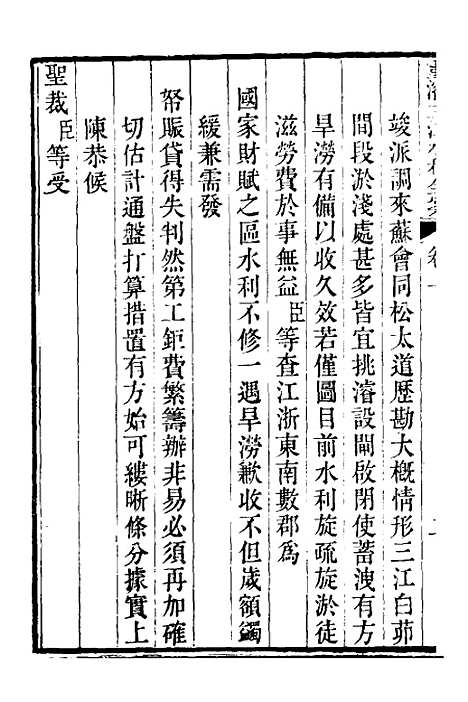 竣派調來蘇會同松太道歷勘大概情形三江白茆
間段淤淺處甚多皆宜挑濬設閘啟閉使蓄洩有方
旱澇有備以收久效若僅圖目前水利旋疏旋淤徒
滋勞費於事無益臣等查江浙東南數郡爲
國家財賦之區水利不修一遇旱澇歉收不但歲額蠲
緩兼需發
帑賑貸得失判然第工鉅費繁籌辦非易必須再加確
切估計通盤打算措置有方始可縷晰條分據實上
陳恭候
聖裁臣等受